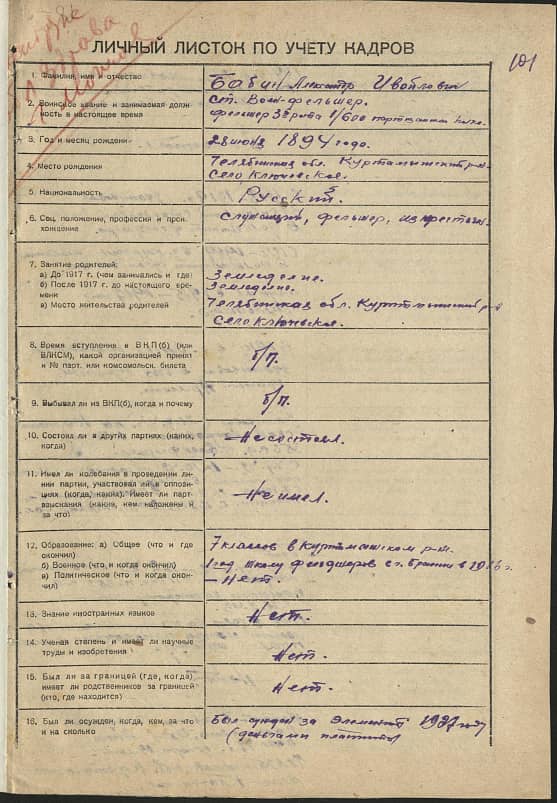 101
ЛИЧНЫЙ ЛИСТОК ПО УЧЕТУ КАДРОВ
1. Фамилия, имя и отчество
Бабин
2. Воинское звание и занимаемая долж-
ность в настоящее время
ст. Воен-фельшер.
фельшер
3. Год и месяц рождения
28 июня 1894 года.
4. Место рождения
Челябинская обл. Куртамышский р-н.
Село Ключевское.
5. Национальность
Русский.
6. Соц. положение, профессия и прои-
хождение
служащий, фельшер, из крестьян.
7. Занятие родителей:
а) До 1917 г. (чем занимались и где)
Земледелие.
б) После 1917 г. до настоящего вре-
мени
Земледелие.
в) Место жительства родителей
Челябинская обл. Куртамышский р-н
Село Ключевское.
8. Время вступления в ВКП(б) (или
ВЛКСМ), какой организацией принят
и № парт. или комсомольск. билета
б/п.
9. Выбывал ли из ВКП(б), когда и почему
б/п.
10. Состоял ли в других партиях (каких,
когда)
Не состоял.
11. Имел ли колебания в проведении ли-
нии партии, участвовал ли в оппози-
циях (когда, каких). Имеет ли парт-
взыскания (какие, кем наложены и
за что)
Не имел.
12. Образование: а) Общее (что и где
окончил)
7 классов в Куртамышском р-не.
б) Военное (что и когда окончил)
школу фельдшеров
в) Политическое (что и когда окон-
чил)
— Нет.
13. Знание иностранных языков
Нет.
14. Ученая степень и имеет ли научные
труды и изобретения
Нет.
15. Был ли за границей (где, когда)
имеет ли родственников за границей
(кто, где находится)
Нет.
16. Был ли осужден, когда, кем, за что
и на сколько
Был сужден за элемент 1937 году
(деньгами платить)